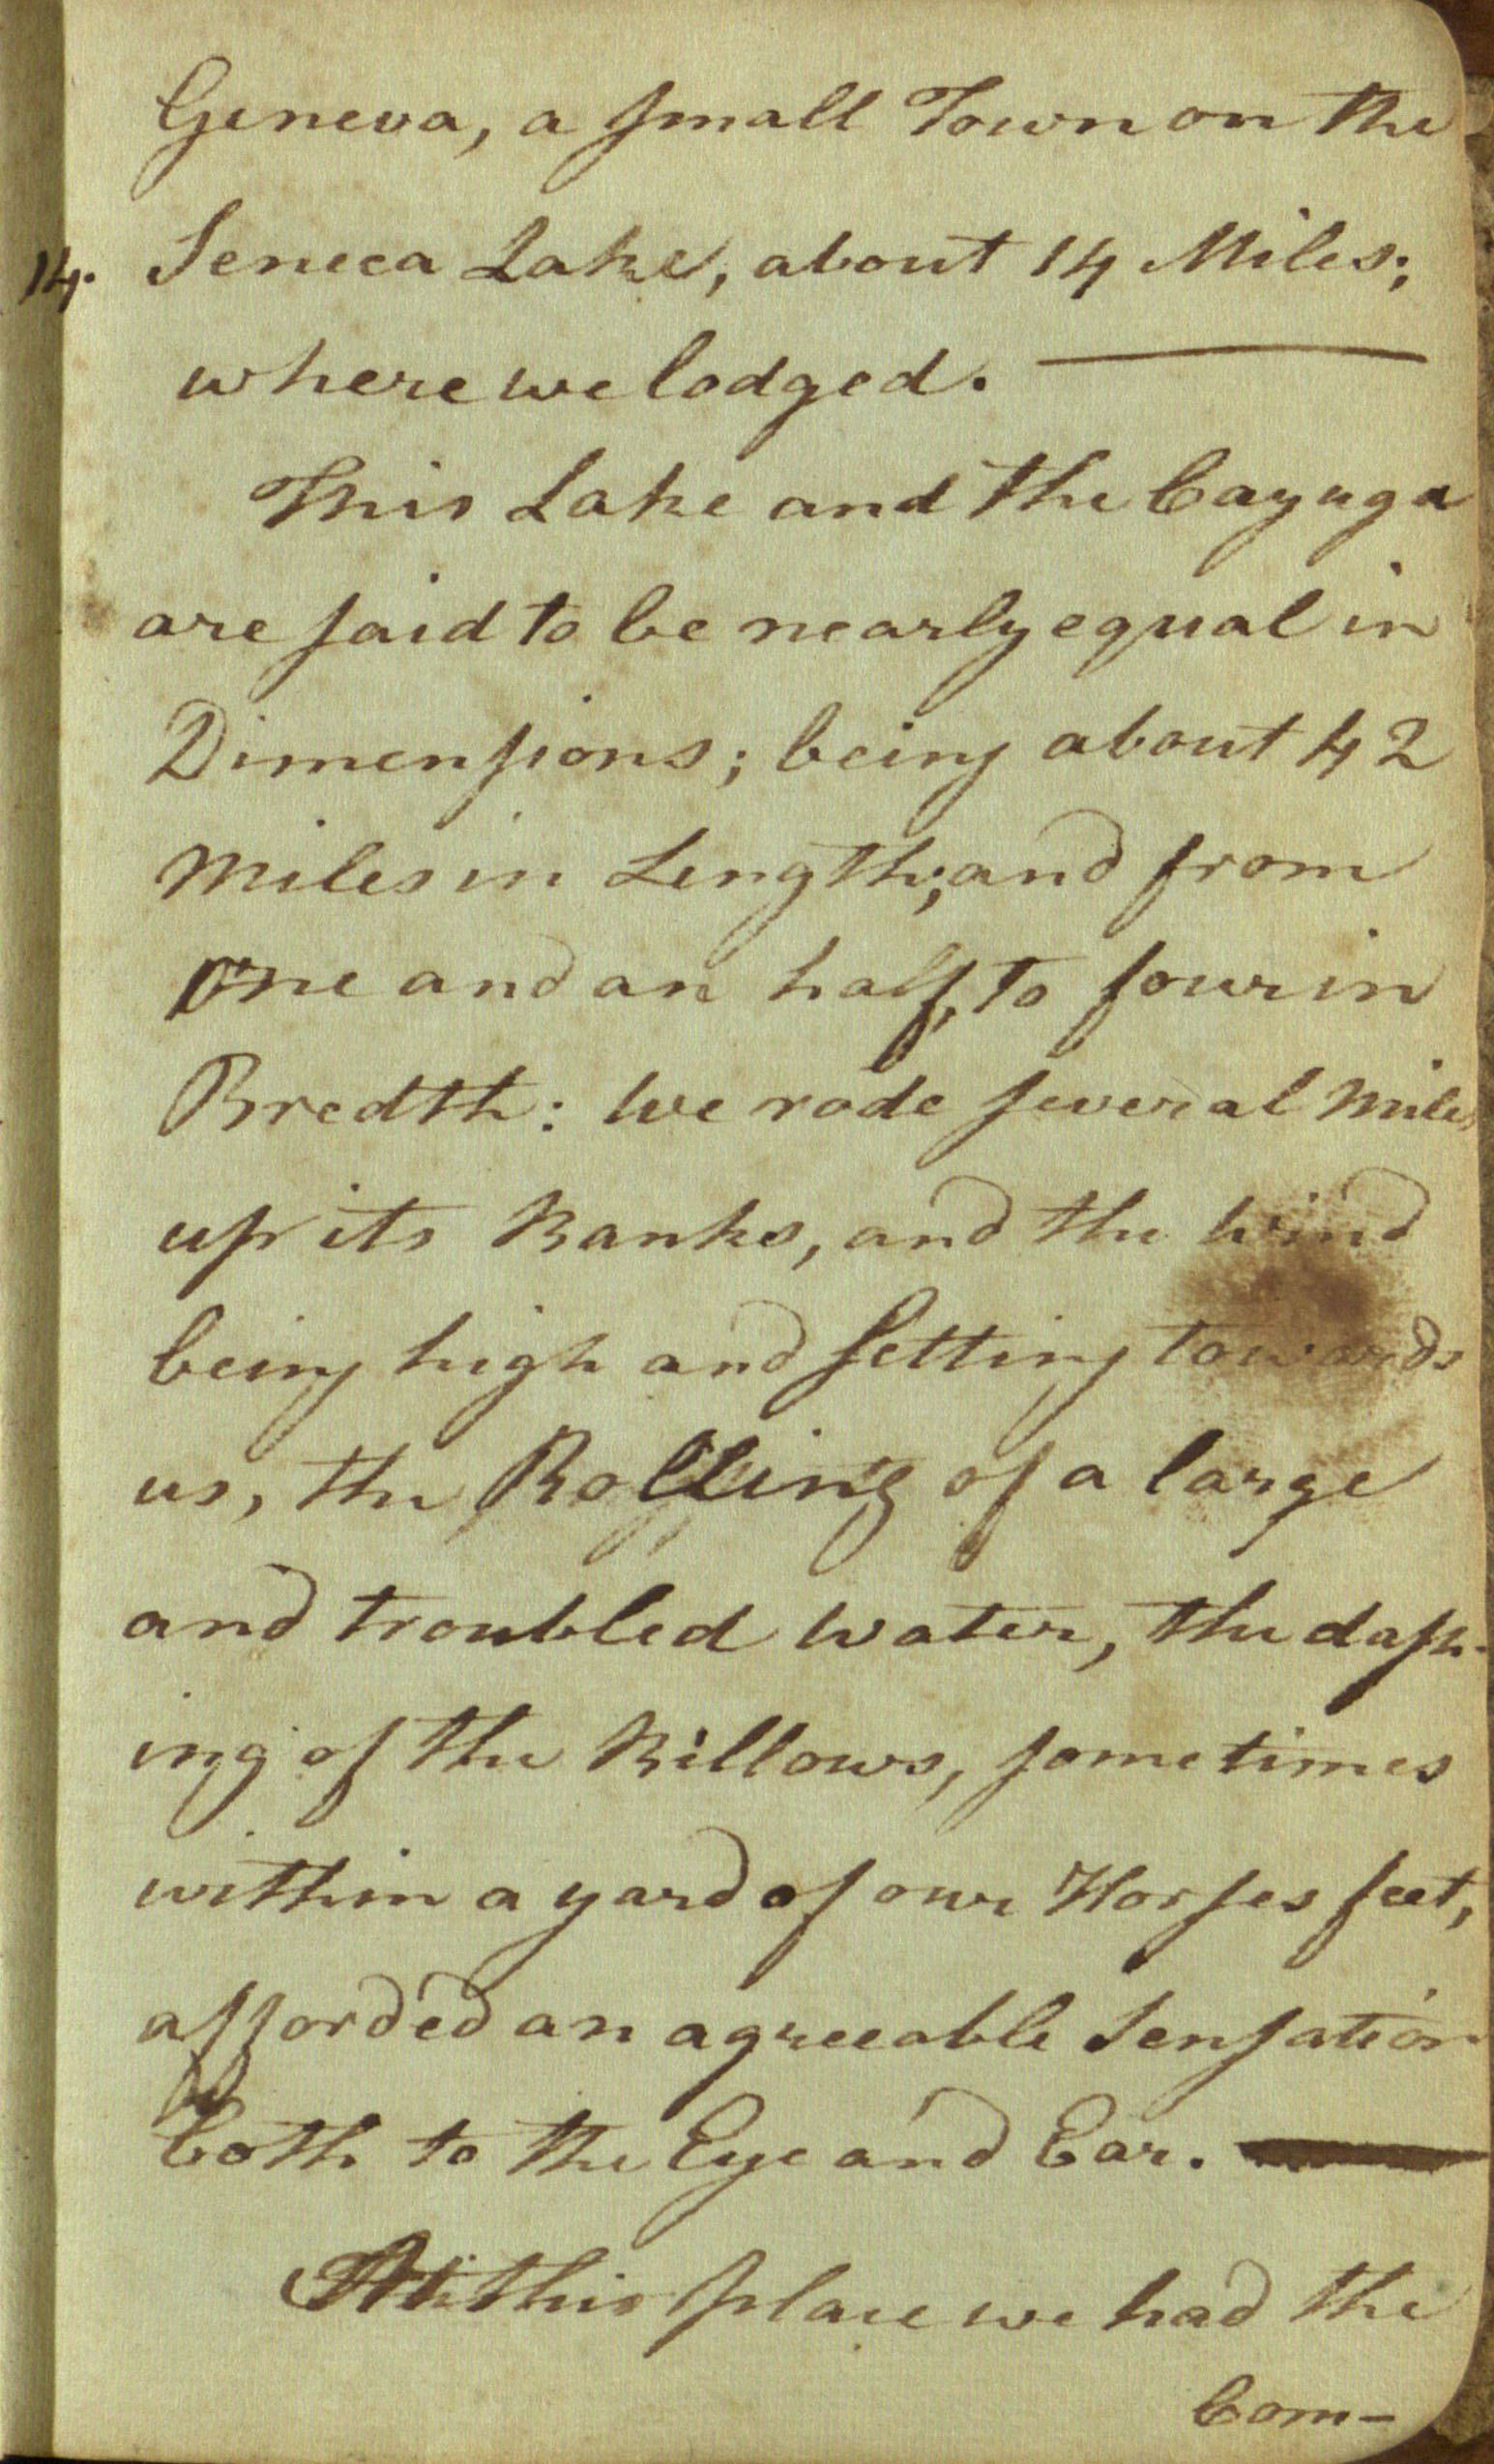 Geneva, a small Town on the
14. Seneca Lake, about 14 Miles;
where we lodged. —
This Lake and the Cayuga
are said to be nearly equal in
Dimensions; being about 42
Miles in Length; and from
one and an half, to four in
Bredth: We rode several Miles
up its Banks, and the Wind
being high and setting towards
us, the Rolling of a large
and troubled Water, the dash-
ing of the Billows, sometimes
within a yard of our Horses feet,
afforded an agreeable Sensation
both to the Eye and Ear. —
At this place we had the
Com-